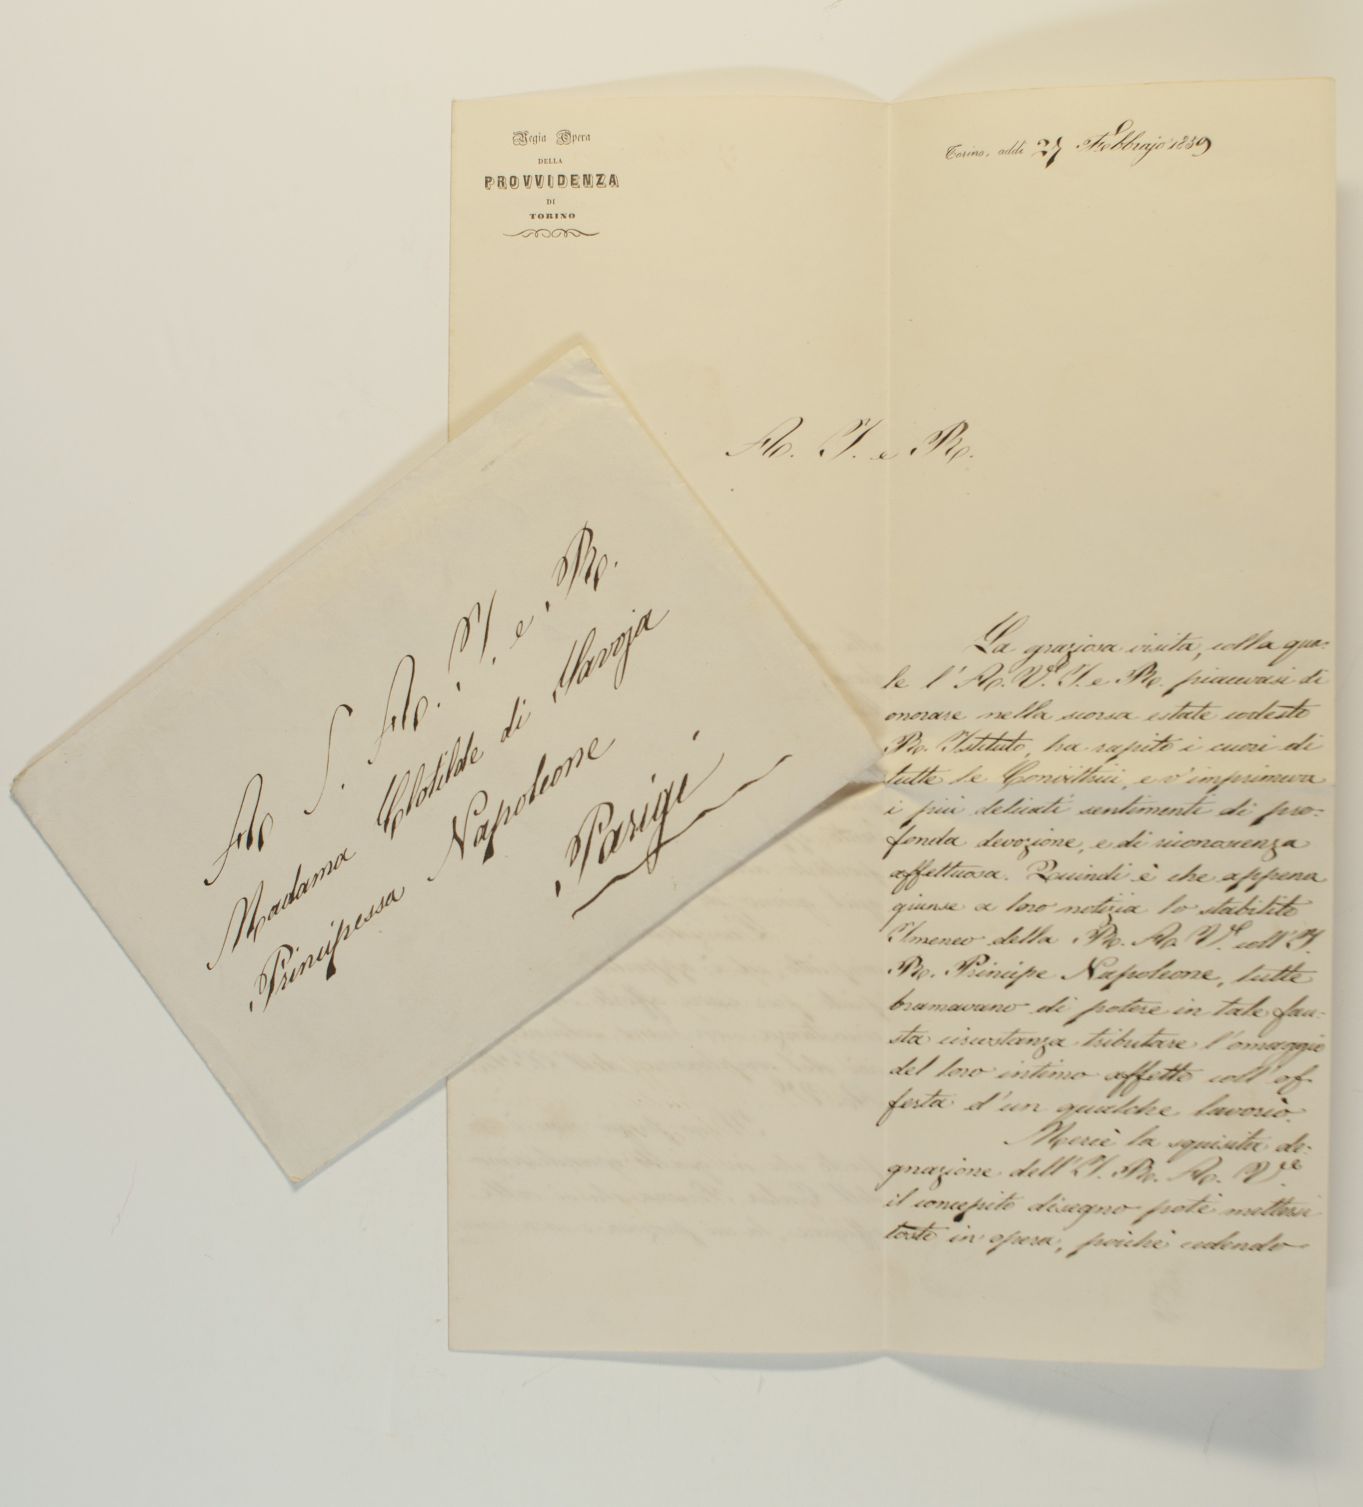 Regia Opera
DELLA
PROVVIDENZA
DI
TORINO
Torino, addì 27 Febbrajo 1859
A. I. e R.
La graziosa visita, colla qua-
le l'A. V. I. e R. piacevasi di
onorare nella scorsa estate codesto
R. Istituto, ha rapito i cuori di
tutte le Convittrici, e v'imprimeva
i più delicati sentimenti di pro-
fonda devozione, e di riconoscenza
affettuosa. Quindi è che appena
giunse a loro notizia lo stabilito
Imeneo della R. A. V. coll'I.
R. Principe Napoleone, tutte
bramavano di potere in tale fau-
sta circostanza tributare l'omaggio
del loro intimo affetto coll'of-
ferta d'un qualche lavorio.
Mercè la squisita de-
gnazione dell'I. R. A. V.
il concepito disegno potè mettersi
tosto in opera, poichè cedendo
A S. A. I. e R.
Madama Clotilde di Savoja
Principessa Napoleone
Parigi